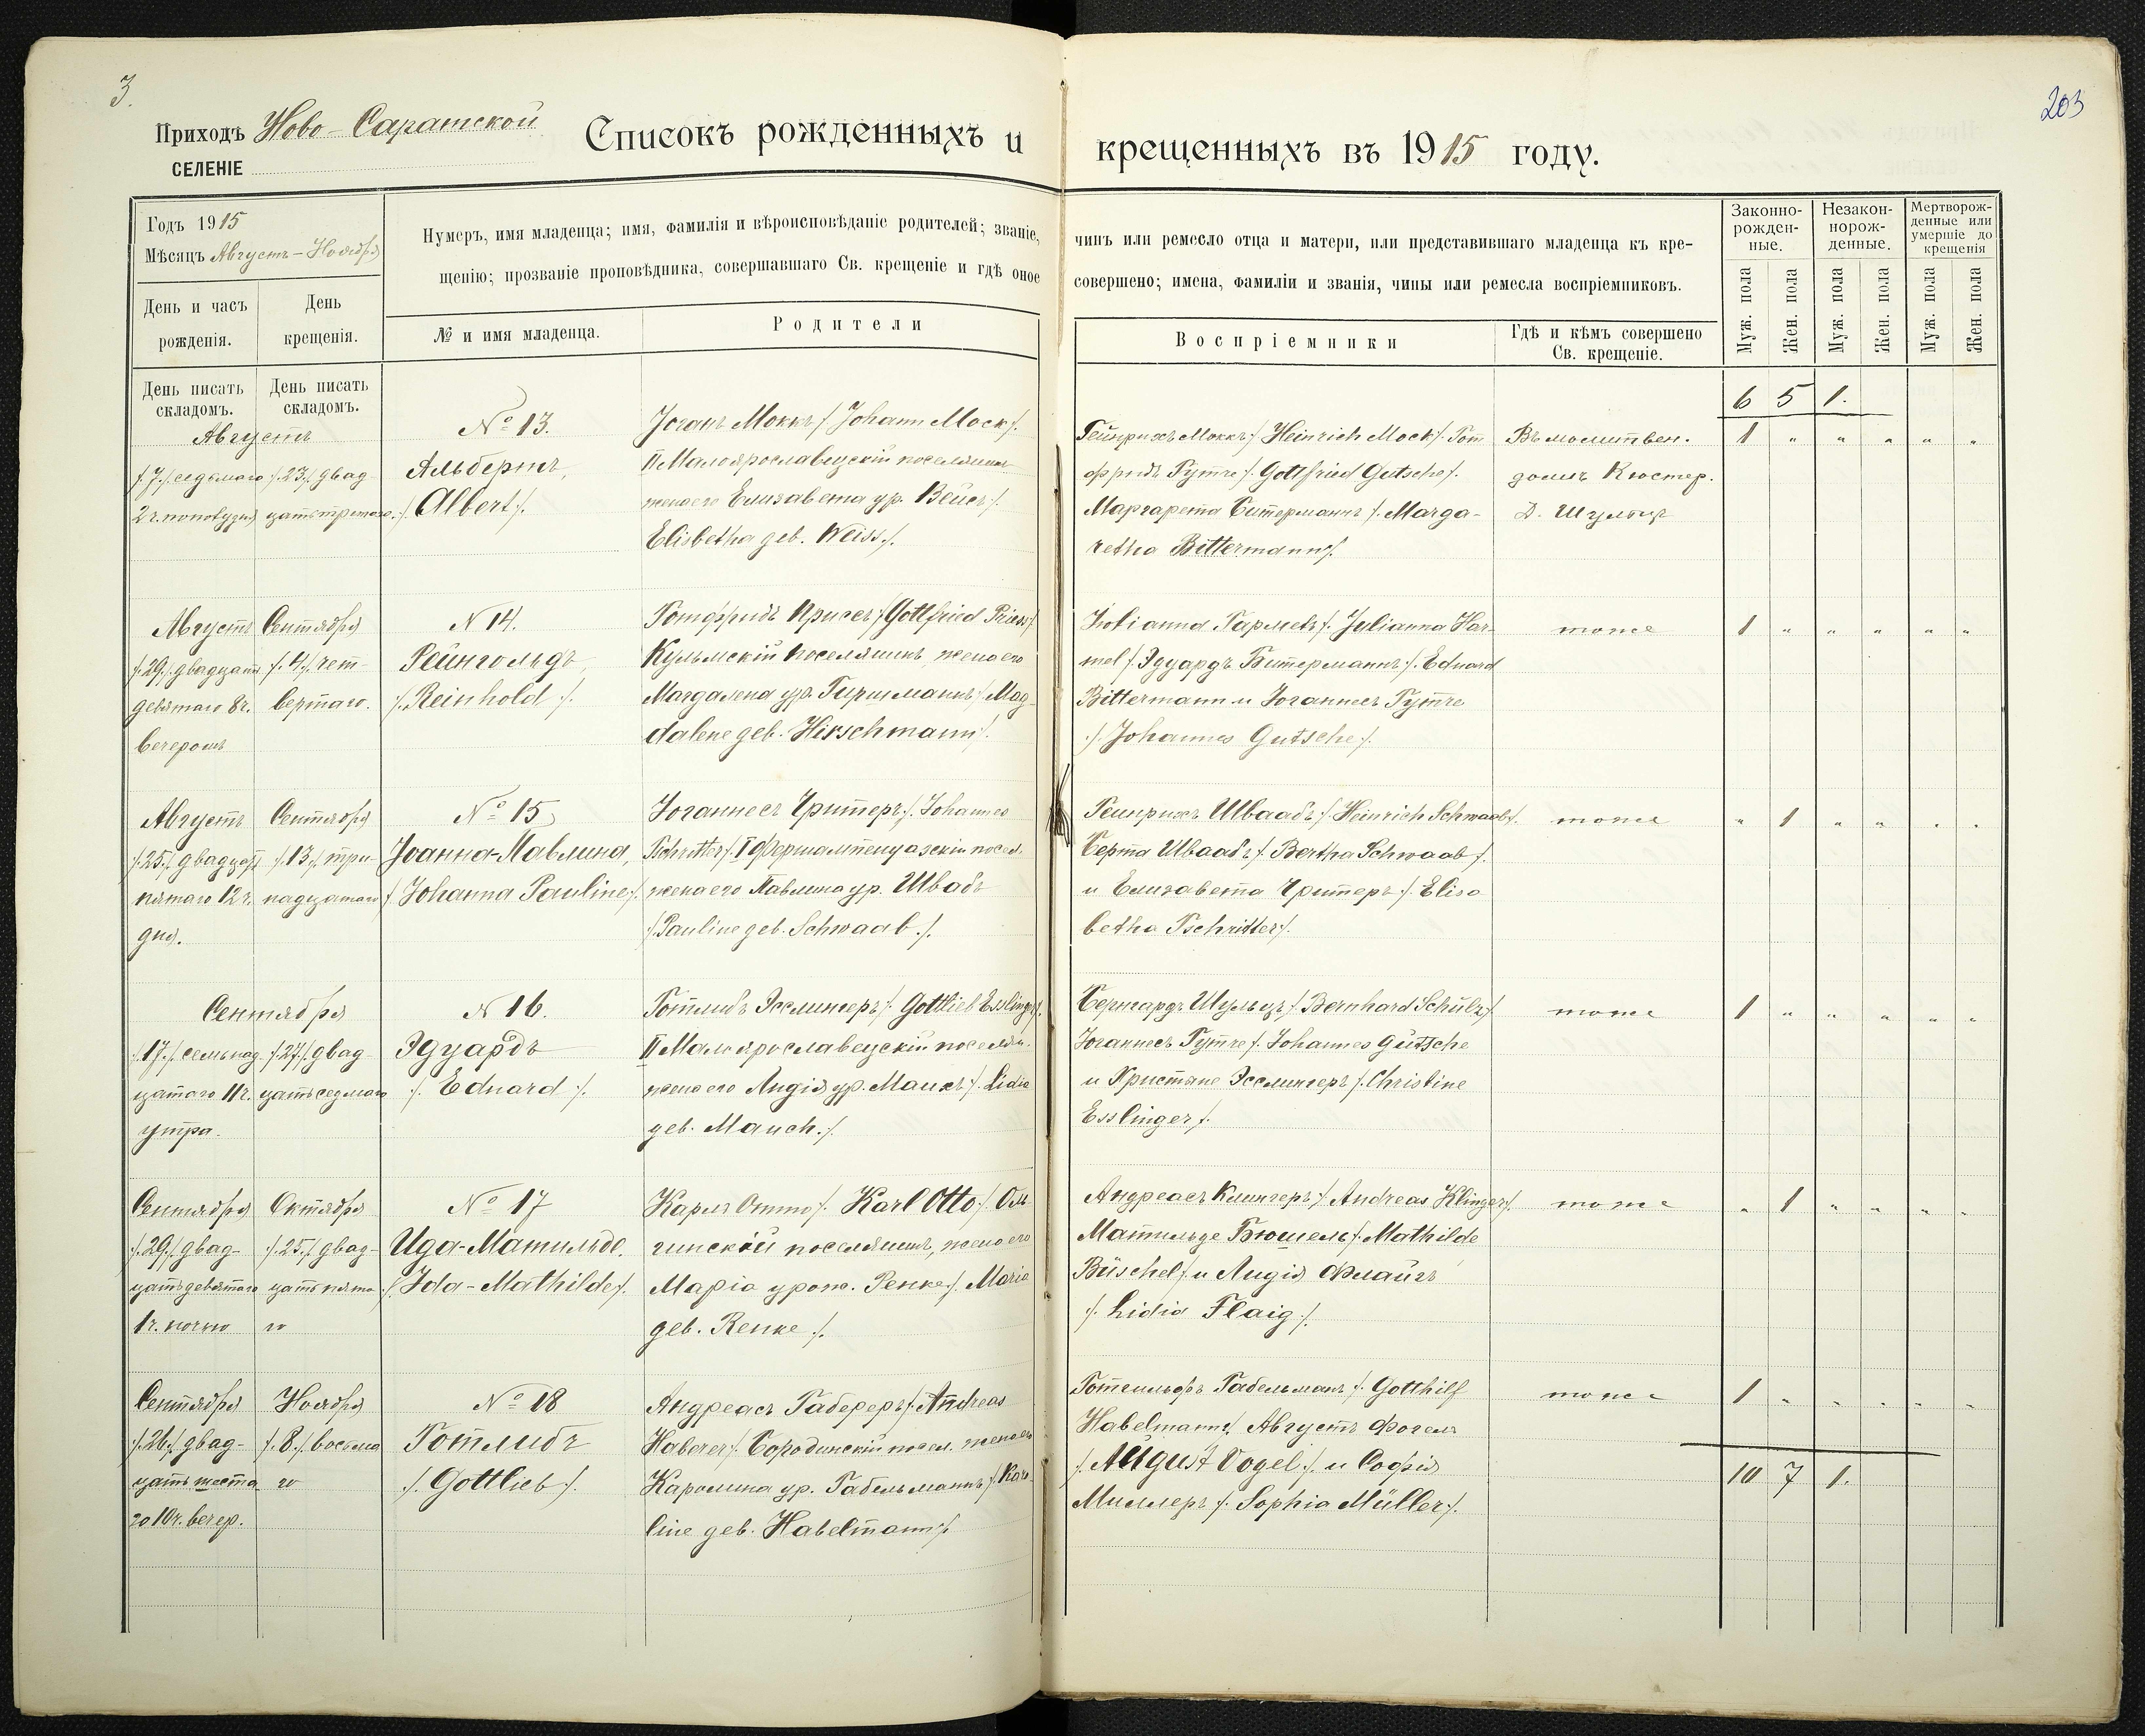 3.
203
Приходъ Ново-Саратской
СЕЛЕНІЕ
Списокъ рожденныхъ и крещенныхъ въ 1915 году.
Годъ 1915
Мѣсяцъ Августъ-Ноябрь
Нумеръ, имя младенца; имя, фамилія и вѣроисповѣданіе родителей; званіе, чинъ или ремесло отца и матери, или представившаго младенца къ кре-
щенію; прозваніе проповѣдника, совершавшаго Св. крещеніе и гдѣ оное совершено; имена, фамиліи и званія, чины или ремесла воспріемниковъ.
Законно-
рожден-
ные.
Незакон-
норож-
денные.
Мертворож-
денные или
умершіе до
крещенія
Муж. пола
Жен. пола
Муж. пола
Жен. пола
Муж. пола
Жен. пола
День и часъ
рожденія.
День
крещенія.
№ и имя младенца.
Родители
Воспріемники
Гдѣ и кѣмъ совершено
Св. крещеніе.
День писать
складомъ.
День писать
складомъ.
6 5 1.
Августъ
/.7./ седьмаго
2 ч. пополудня
/.23./ двад
цать третаго.
№ 13.
Альбертъ,
/. Albert /.
Іоганъ Моккъ /. Johann Mock /.
II Малоярославецскій поселянинъ
жена его Елизавета ур. Вейсъ /.
Elisbetha geb. Weiss /.
Гейнрихъ Моккъ /. Heinrich Mock /. Гот
фридъ Гутче /. Gottfried Gutsche /.
Маргарета Битерманнъ /. Marga-
retha Bittermann /.
Въ молитвен.
домѣ Кюстер.
Д. Шульцъ
1 " " " " "
Августъ
/.29./ двадцать
девятаго 8 ч.
вечеромъ
Сентября
/.4./ чет-
вертаго.
N 14.
Рейнгольдъ
/. Reinhold /.
Готфридъ Присъ /. Gottfried Priess /.
Кульмскій поселянинъ, жена его
Магдалена ур. Гиршманнъ /. Mag-
dalene geb. Hirschmann /.
Юлианна Гармель /. Julianna Har-
mel /. Эдуардъ Битерманнъ /. Eduard
Bittermann и Іоганнесъ Гутче
/. Johannes Gutsche /.
тоже
1 " " " " "
Августъ
/.25./ двадцать
пятаго 12 ч.
дня.
Сентября
/.13./ три-
надцатаго
№ 15
Іоанна-Павлина,
/. Johanna Pauline /.
Іоганнесъ Чриттеръ /. Johannes
Tschritter /. I Фершампенуазскій посел.
жена его Павлина ур. Швабъ
/. Pauline geb. Schwaab /.
Гейнрихъ Шваабъ /. Heinrich Schwaab /.
Берта Шваабъ /. Bertha Schwaab /.
и Елизавета Чритеръ /. Elisa
betha Tschritter /.
тоже
" 1 " " " "
Сентября
/.17./ семьнад
цатаго 11 ч.
утра.
/.27./ двад
цать седмаго
N 16.
Эдуардъ
/. Eduard /.
Готлибъ Эсслингеръ /. Gottlieb Esslinger /.
II Малоярославецскій поселян.
жена его Лидія ур. Маухъ /. Lidia
geb. Mauch /.
Бернгардъ Шульцъ /. Bernhard Schulz /.
Іоганнесъ Гутче /. Johannes Gutsche
и Христине Эсслингеръ /. Christine
Esslinger /.
тоже
1 " " " " "
Сентября
/.29./ двад-
цать девятаго
1 ч. ночью
Октября
/.25./ двад-
цать пята-
го
№ 17
Ида-Матильде.
/. Ida-Mathilde /.
Карлъ Отто /. Karl Otto /. Оль
гинскій поселянинъ, жена его
Марія урож. Ренке /. Maria
geb. Renke /.
Андреасъ Клингеръ /. Andreas Klinger /.
Матильде Бюшель /. Mathilde
Büschel /. и Лидія Флайгъ
/. Lidia Flaig /.
тоже
" 1 " " " "
Сентября
/.26./ двад-
цать шеста
го 10 ч. вечер.
Ноября
/.8./ восьма
го
№ 18
Готлибъ
/. Gottlieb /.
Андреасъ Габереръ /. Andreas
Haberer /. Бородинскій посел. жена его
Каролина ур. Габельманнъ /. Karo-
line geb. Habelmann /.
Готгильфъ Габельманъ /. Gotthilf
Habelmann /. Августъ Фогель
/. August Vogel /. и Софія
Миллеръ /. Sophia Müller /.
тоже
1 " " " " "
10 7 1.